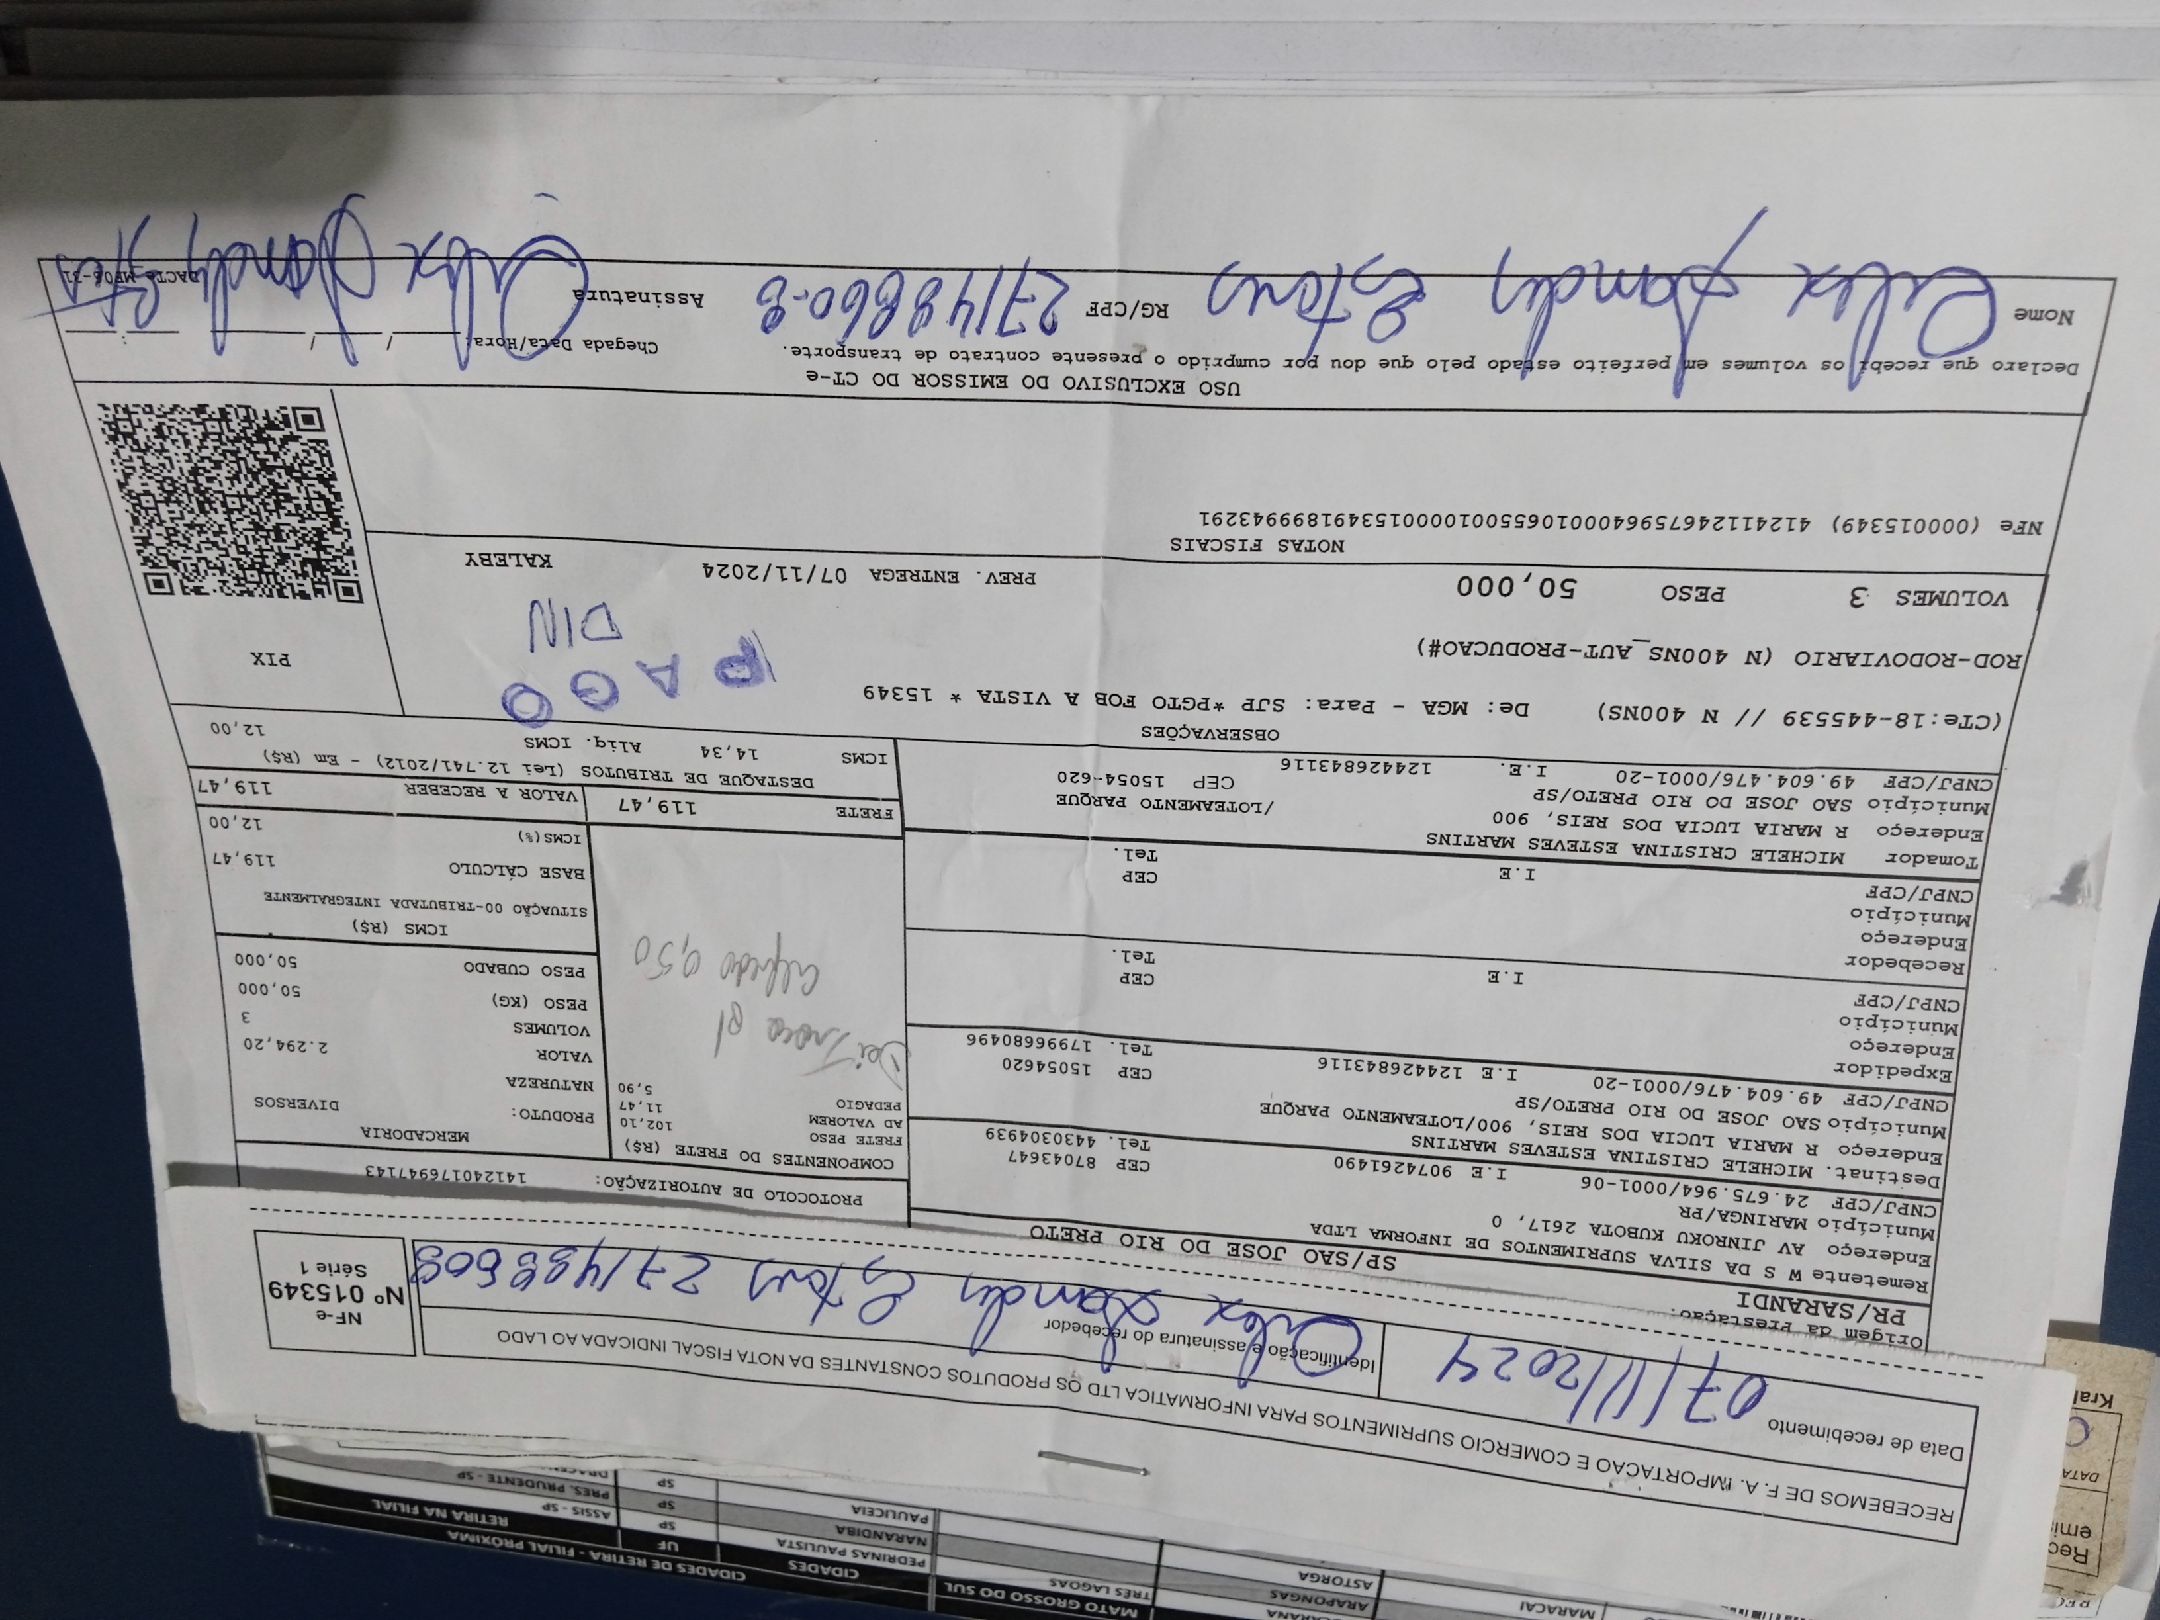 MATO GROSSO DO SUL
CIDADES DE RETIRA - FILIAL PRÓXIMA
MARACAI
ARAPONGAS
ASTORGA
TRES LAGOAS
CIDADES UF RETIRA NA FILIAL
PEDRINAS PAULISTA SP ASSIS - SP
NARANDIBA SP PRES. PRUDENTE - SP
PAULICEIA SP
RECEBEMOS DE F.A. IMPORTACAO E COMERCIO SUPRIMENTOS PARA INFORMATICA LTD OS PRODUTOS CONSTANTES DA NOTA FISCAL INDICADA AO LADO
Data de recebimento
07/11/2024
Identificação e assinatura do recebedor
Alex Sandro Esteves 271488608
NF-e
Nº 015349
Série 1
Origem da Prestação:
PR/SARANDI
SP/SAO JOSE DO RIO PRETO
Remetente W S DA SILVA SUPRIMENTOS DE INFORMA LTDA
Endereço AV JINROKU KUBOTA 2617, 0
Município MARINGA/PR CEP 87043647
CNPJ/CPF 24.675.964/0001-06 I.E 9074261490 Tel. 443304939
Destinat. MICHELE CRISTINA ESTEVES MARTINS
Endereço R MARIA LUCIA DOS REIS, 900/LOTEAMENTO PARQUE
Município SAO JOSE DO RIO PRETO/SP CEP 15054620
CNPJ/CPF 49.604.476/0001-20 I.E 124426843116 Tel. 17996680496
Expedidor
Endereço
Município CEP
CNPJ/CPF I.E Tel.
Recebedor
Endereço
Município CEP
CNPJ/CPF I.E Tel.
Tomador MICHELE CRISTINA ESTEVES MARTINS
Endereço R MARIA LUCIA DOS REIS, 900 /LOTEAMENTO PARQUE
Município SAO JOSE DO RIO PRETO/SP CEP 15054-620
CNPJ/CPF 49.604.476/0001-20 I.E. 124426843116
PROTOCOLO DE AUTORIZAÇÃO: 141240176947143
COMPONENTES DO FRETE (R$)
FRETE PESO 102,10
AD VALOREM 11,47
PEDAGIO 5,90
Dei Troco p/
Alfredo 0,50
MERCADORIA
PRODUTO: DIVERSOS
NATUREZA
VALOR 2.294,20
VOLUMES 3
PESO (KG) 50,000
PESO CUBADO 50,000
ICMS (R$)
SITUAÇÃO 00-TRIBUTADA INTEGRALMENTE
BASE CÁLCULO 119,47
ICMS(%) 12,00
FRETE 119,47 VALOR A RECEBER 119,47
DESTAQUE DE TRIBUTOS (Lei 12.741/2012) - Em (R$)
ICMS 14,34 Aliq. ICMS 12,00
OBSERVAÇÕES
(CTe:18-445539 // N 400NS) De: MGA - Para: SJP *PGTO FOB A VISTA * 15349
ROD-RODOVIARIO (N 400NS_AUT-PRODUCAO#)
PAGO
DIN
PIX
VOLUMES 3 PESO 50,000 PREV. ENTREGA 07/11/2024 KALEBY
NOTAS FISCAIS
NFe (000015349) 41241124675964000106550010000153491899943291
USO EXCLUSIVO DO EMISSOR DO CT-e
Declaro que recebi os volumes em perfeito estado pelo que dou por cumprido o presente contrato de transporte.
Chegada Data/Hora: / / :
Nome Alex Sandro Esteves RG/CPF 27148860-8 Assinatura Alex Sandro
DACTE MF06-31